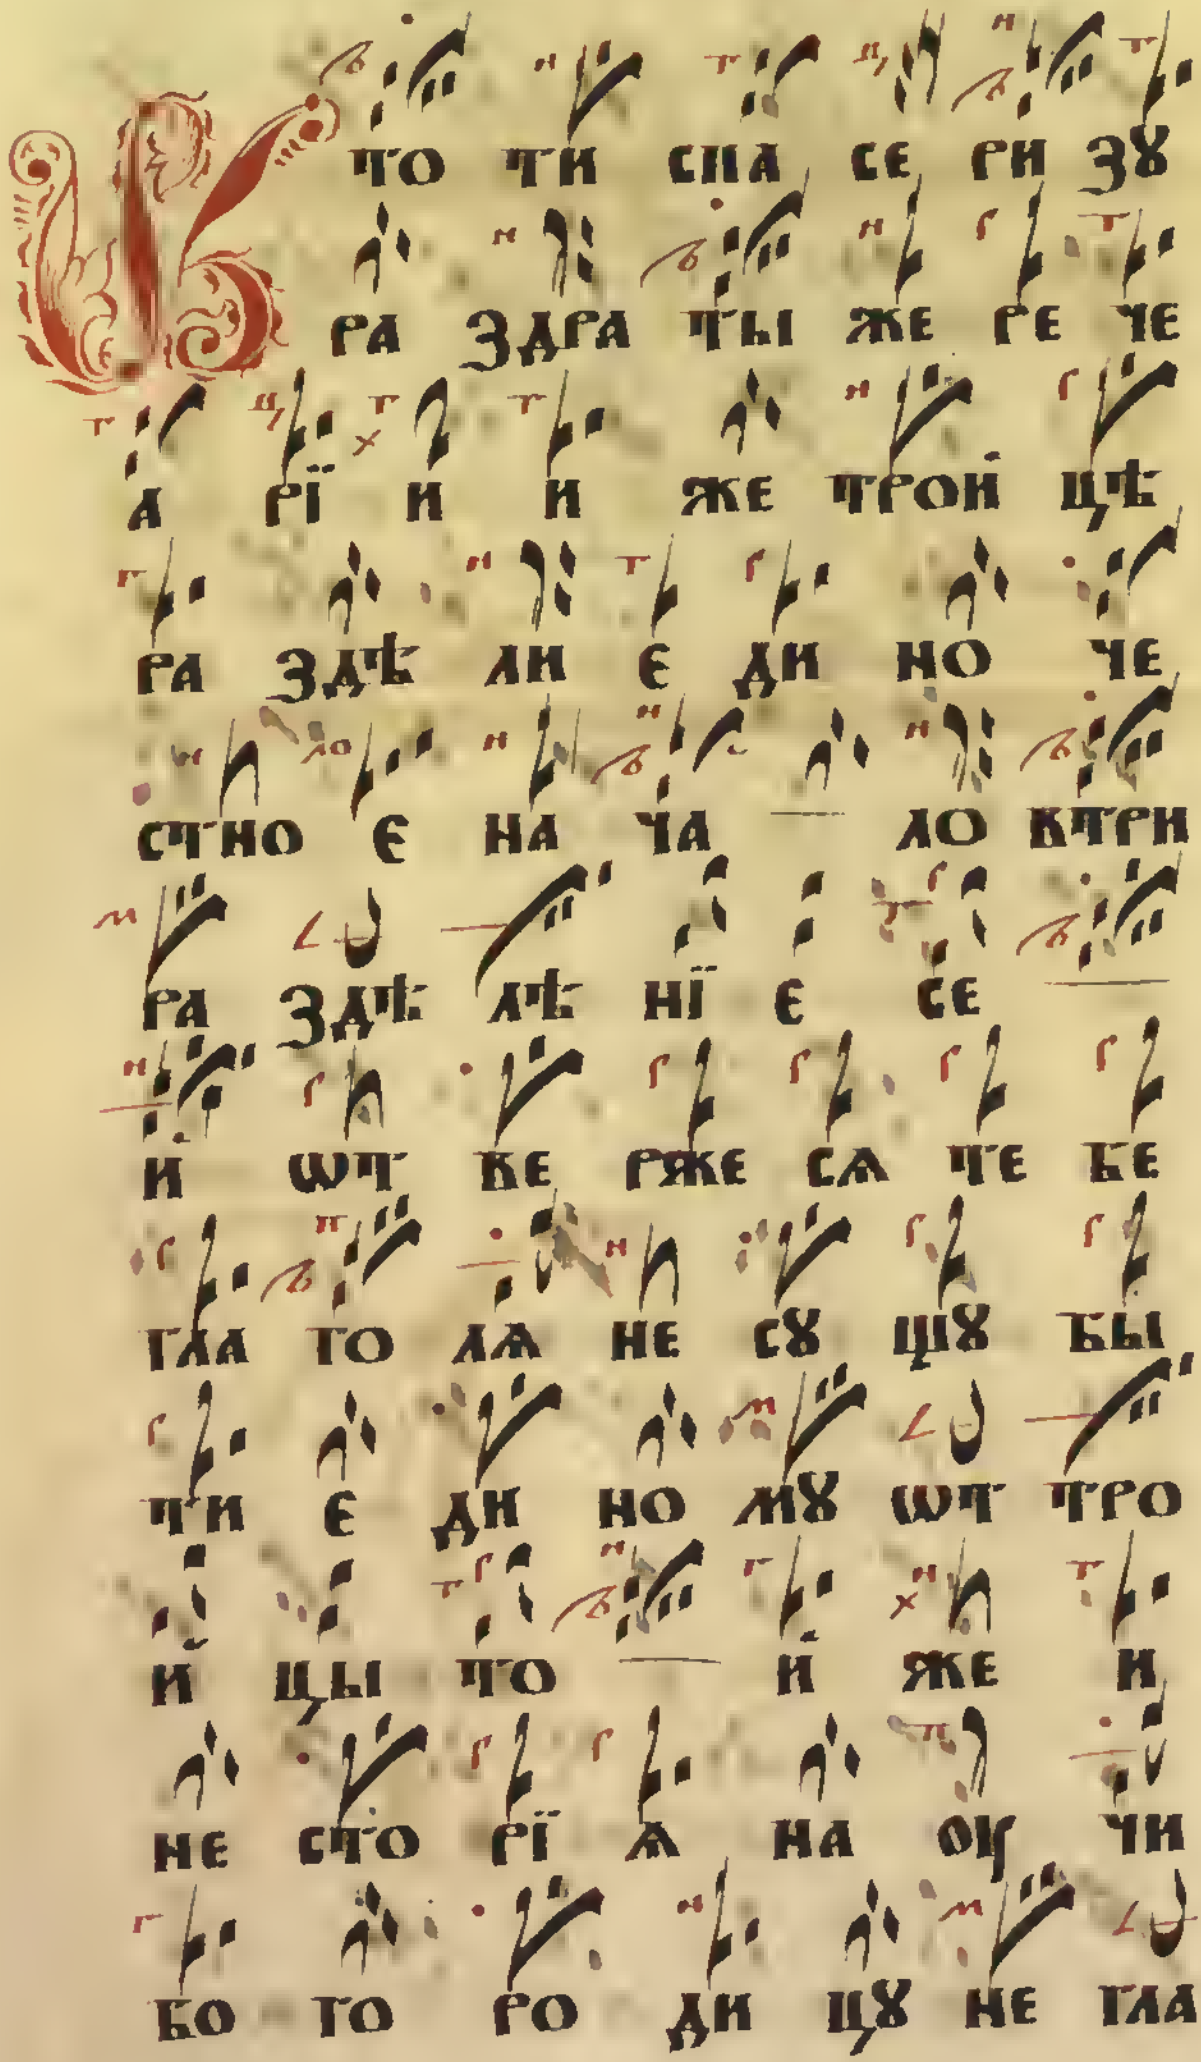 К то ти спа се ри зу
ра здра ты же ре че
а рї и и же трой цѣ
ра здѣ ли є ди но че
стно є на ча ло втри
ра здѣ лѣ нї є се
й ѡт ве рже сѧ те бе
гла го лѧ не сꙋ щꙋ бы
ти є ди но мꙋ ѡт тро
й цы то й же и
не сто рї ѧ на оу чи
бо го ро ди цꙋ не гла